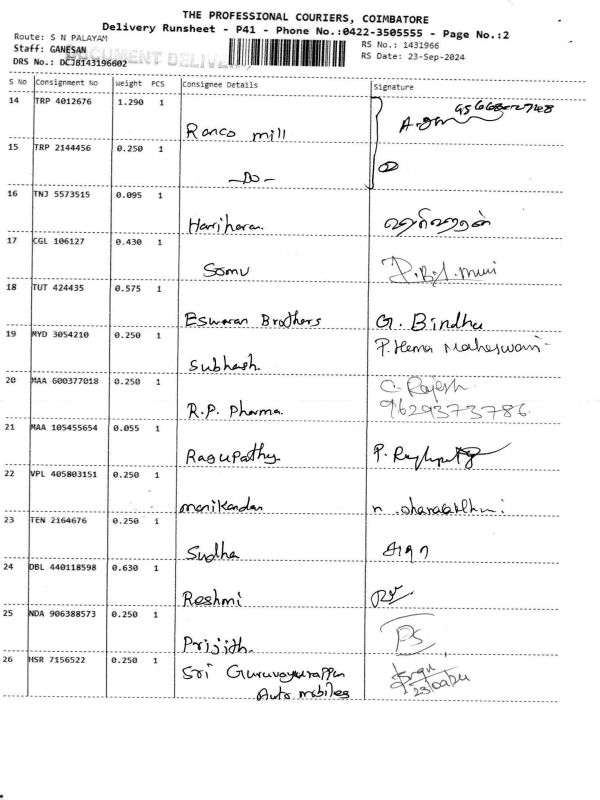 THE PROFESSIONAL COURIERS, COIMBATORE
Delivery Runsheet - P41 - Phone No.:0422-3505555 - Page No.:2
Route: S N PALAYAM
Staff: GANESAN
DRS No.: DCJ8143196602
RS No.: 1431966
RS Date: 23-Sep-2024
S No Consignment No Weight PCS Consignee Details Signature
14 TRP 4012676 1.290 1
Ranco mill
15 TRP 2144456 0.250 1
-Do-
16 TNJ 5573515 0.095 1
Hariharan ஹரிஹரன்
17 CGL 106127 0.430 1
Somu
18 TUT 424435 0.575 1
Eswaran Brothers G. Bindhu
19 MYD 3054210 0.250 1 P. Hema Maheswari
Subhash
20 MAA 600377018 0.250 1 C. Rajesh
R.P. Pharma 9629373786
21 MAA 105455654 0.055 1
Ragupathy
22 VPL 405803151 0.250 1
manikandan
23 TEN 2164676 0.250 1
Sudha சுதா
24 DBL 440118598 0.630 1
Reshmi
25 NDA 906388573 0.250 1
Prijith PS
26 HSR 7156522 0.250 1
Sri Guruvayurappan
Auto mobiles 23/09/24